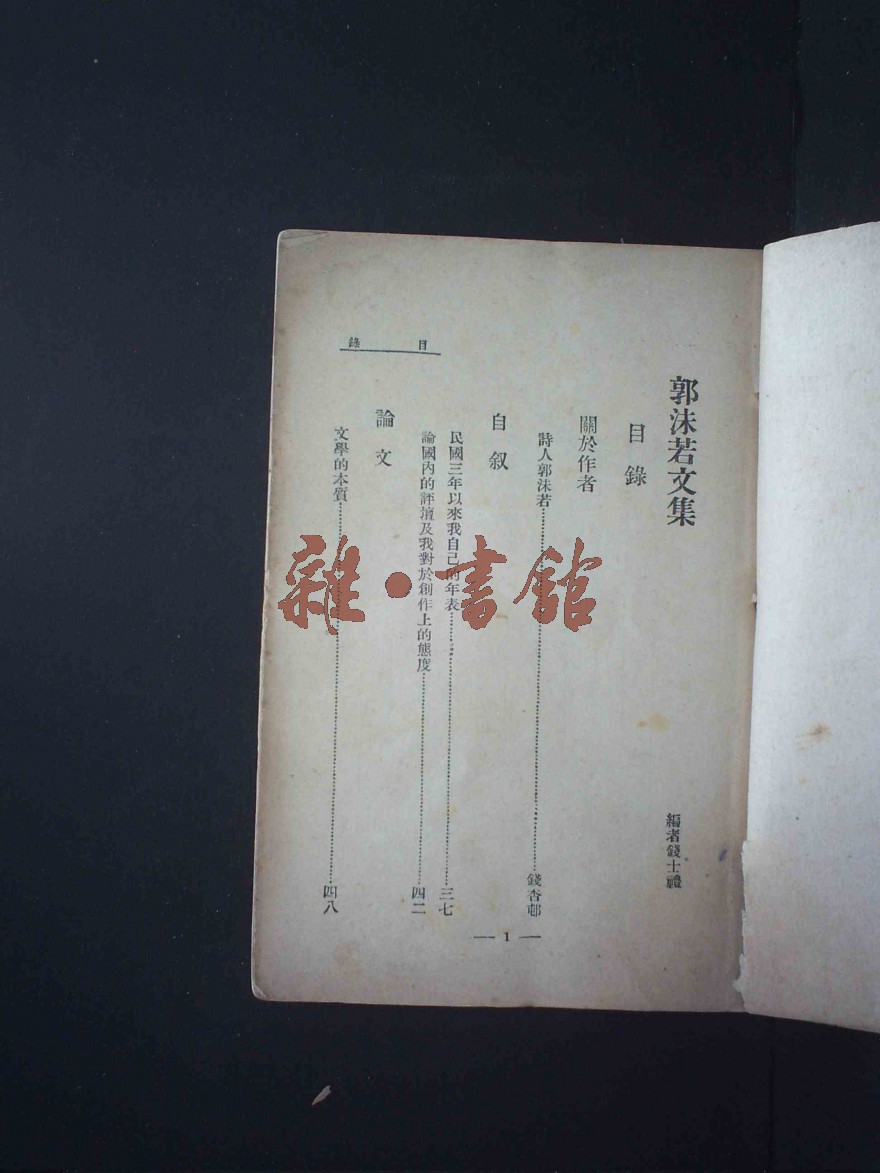 郭沫若文集
編者錢士禮
目錄
關於作者
詩人郭沫若……錢杏邨
自叙
民國三年以來我自己的年表……三七
論國內的評壇及我對於創作上的態度……四二
論文
文學的本質……四八
目錄
— 1 —
雜·書館